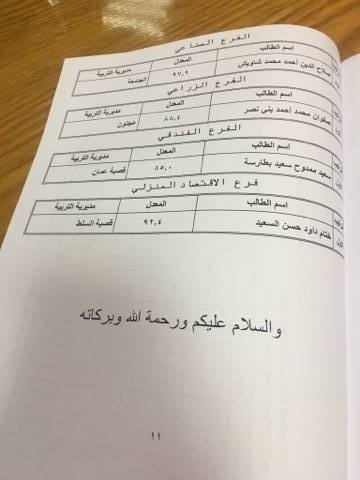 الفرع الصناعي
اسم الطالب المعدل مديرية التربية
صلاح الدين أحمد محمد شاويش ٩٧,٩ الجامعة
الفرع الزراعي
اسم الطالب المعدل مديرية التربية
صفوان محمد أحمد بني نصر ٨٨,٤ عجلون
الفرع الفندقي
اسم الطالب المعدل مديرية التربية
سعيد ممدوح سعيد بطارسة ٨٥,٠ قصبة عمان
فرع الاقتصاد المنزلي
اسم الطالب المعدل مديرية التربية
ختام داود حسن السعيد ٩٢,٤ قصبة السلط
والسلام عليكم ورحمة الله وبركاته
١١